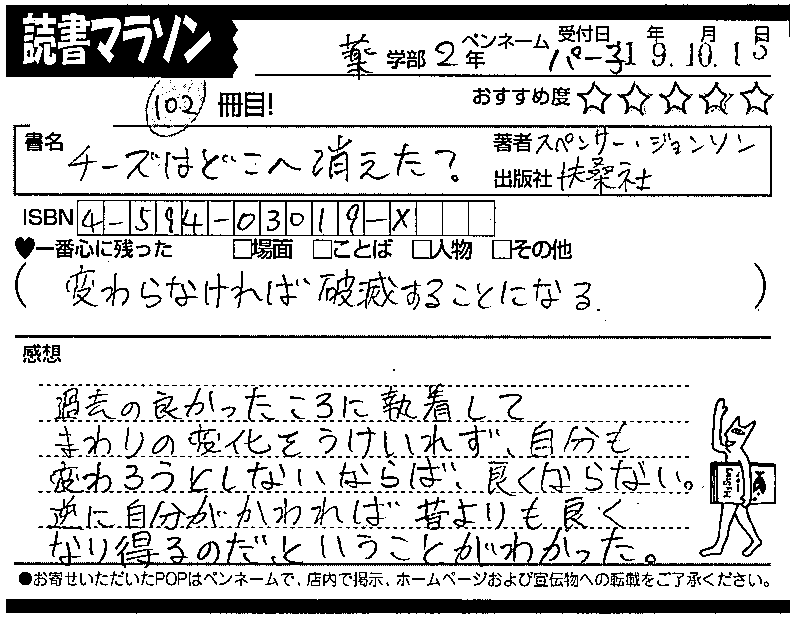 読書マラソン
薬 学部 2年 ペンネーム パー子 受付日 19年 10月 15日
102 冊目! おすすめ度 ☆☆☆☆☆
書名 チーズはどこへ消えた? 著者 スペンサー・ジョンソン
出版社 扶桑社
ISBN 4-594-03019-X
♥一番心に残った □場面 □ことば □人物 □その他
(変わらなければ破滅することになる.)
感想
過去の良かったころに執着して
まわりの変化をうけいれず、自分も
変わろうとしないならば、良くならない。
逆に自分がかわれば昔よりも良く
なり得るのだ、ということがわかった。
●お寄せいただいたPOPはペンネームで、店内で掲示、ホームページおよび宣伝物への転載をご了承ください。